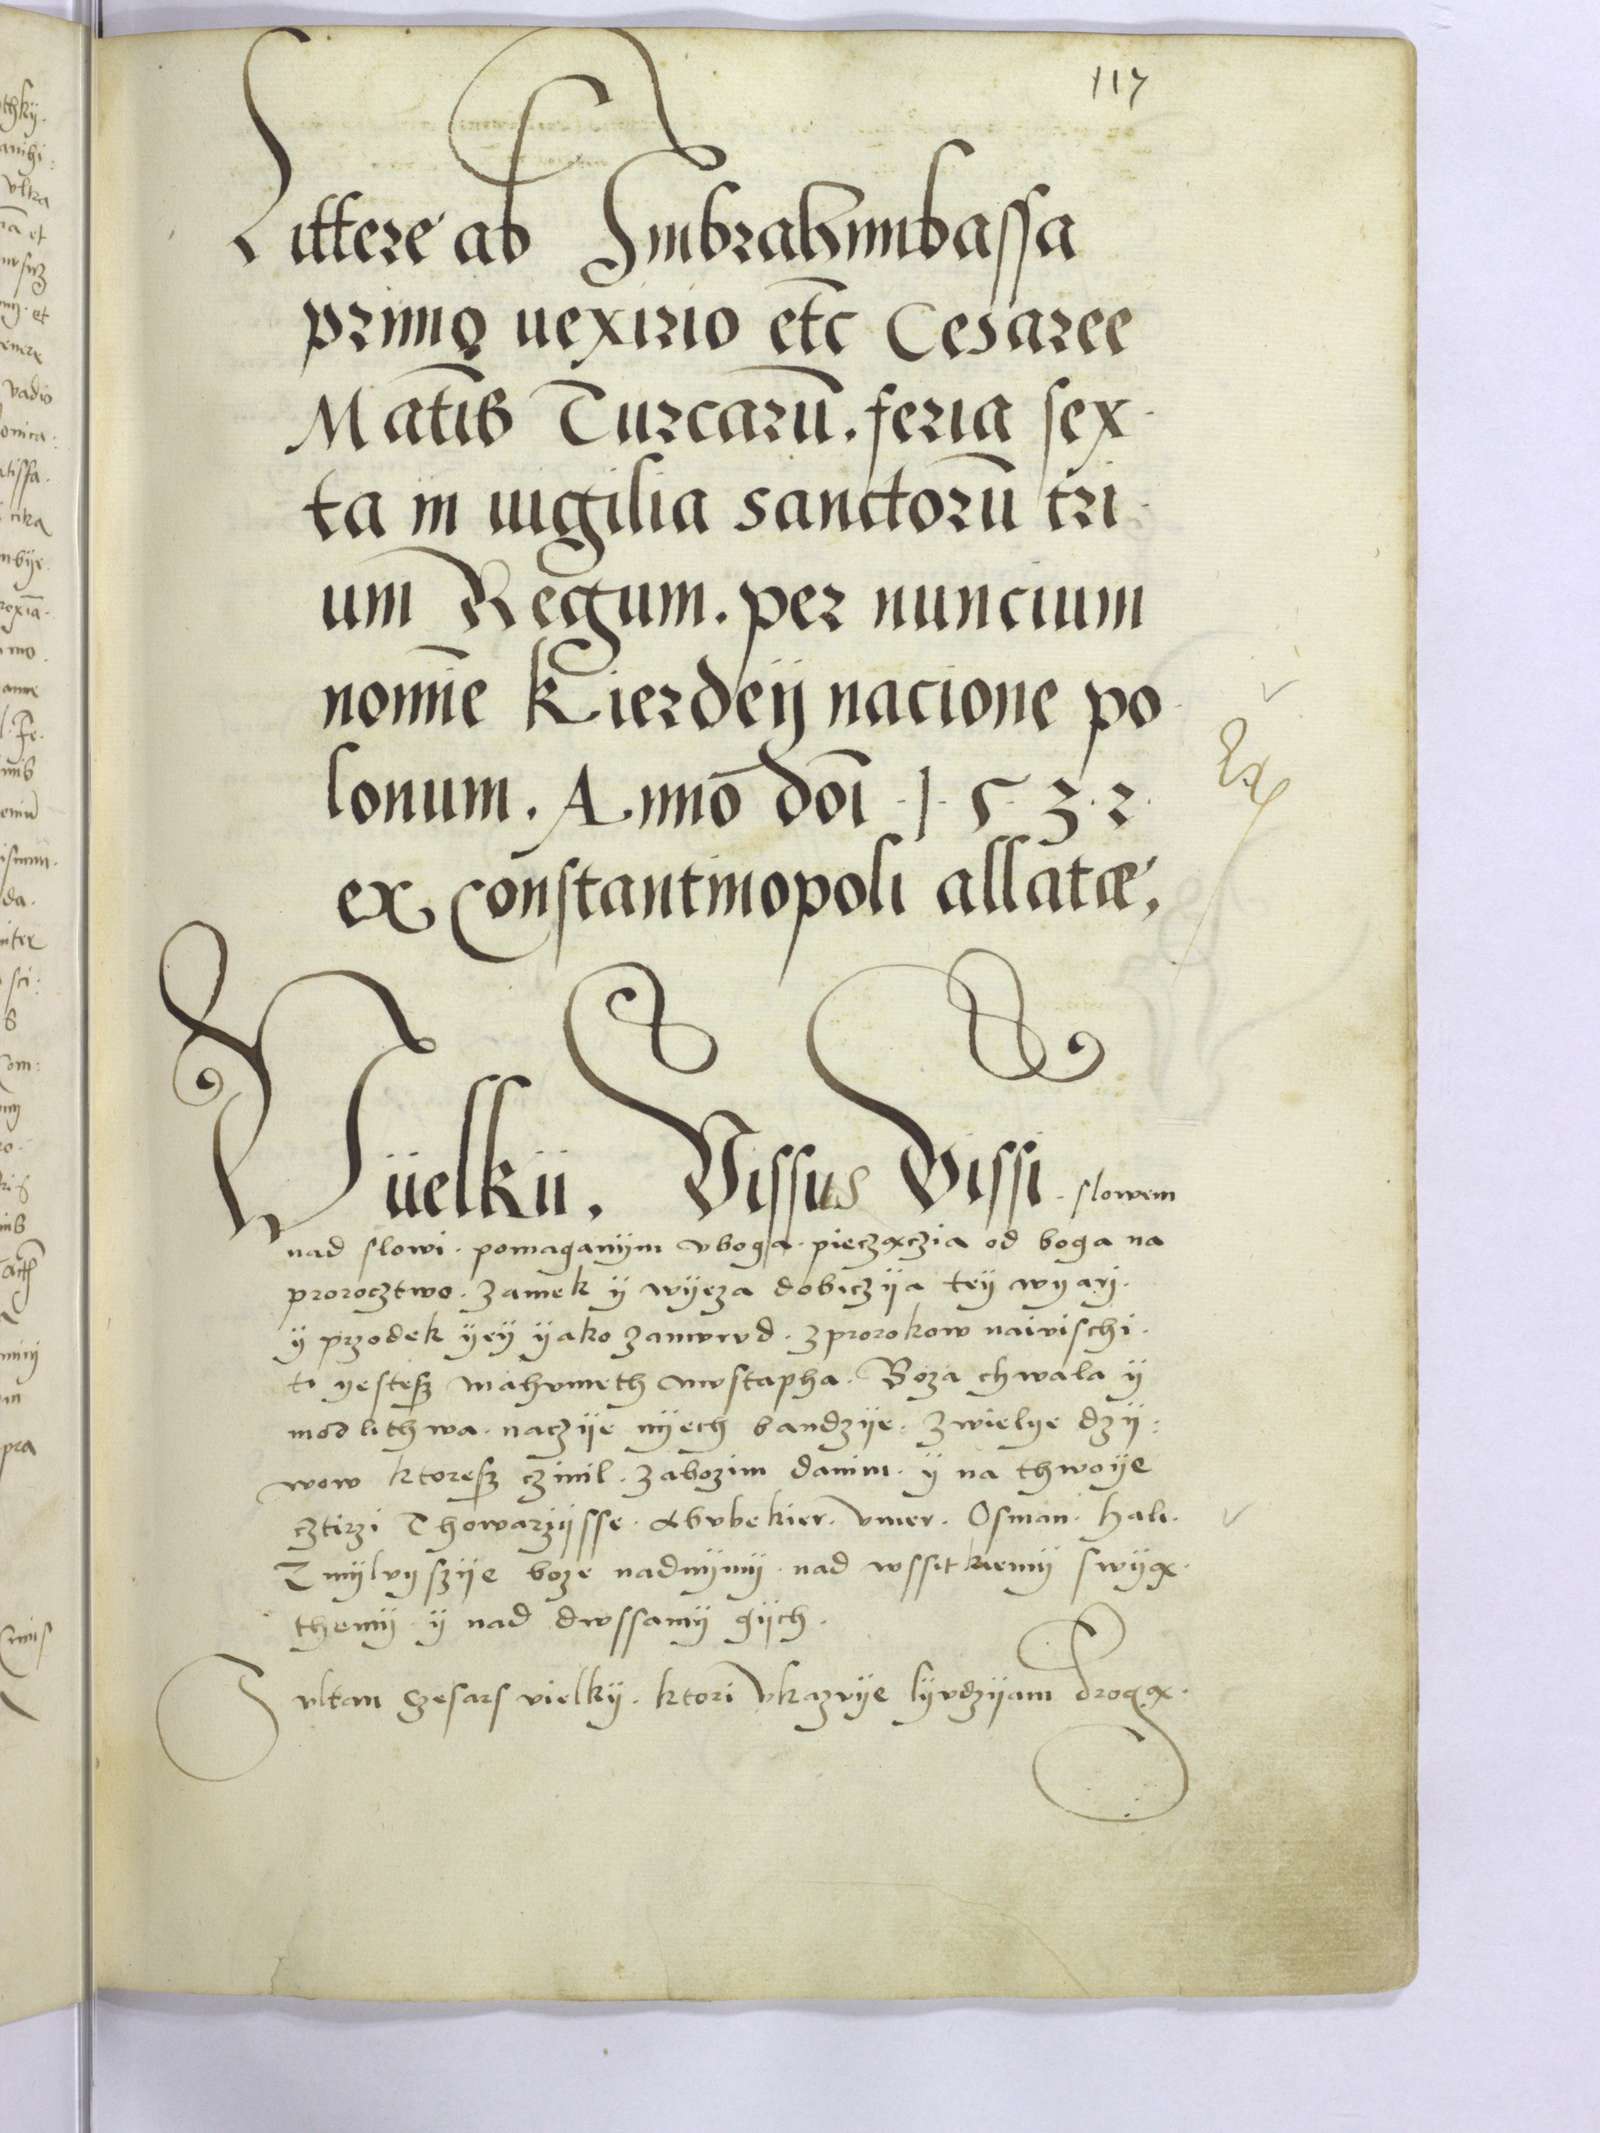 117
Littere ab Imbrahimbassa
primo vexirio etc Cesaree
Matis Turcarū. feria sex
ta in uigilia sanctorū tri
um Regum. per nuncium
nomīe Kierdeÿ nacione po
lonum. Anno doī ·1·5·3·2·
ex Constantinopoli allatæ,
Wÿelkii. Vissus Vissi. slowem
nad slowi. pomaganÿm vboga. pieczączia od boga na
prorocztwo. zamek ÿ wÿeza dobiczÿa teÿ wÿarÿ.
ÿ przodek ÿeÿ ÿako zamrvd. z prorokow naivischi.
to yestesz mahvmeth mvstapha. Boza chwala ÿ
modlithwa. naczÿe nyech bandzÿe. zwielye dzÿ:
wow ktoresz czinil. zabozim danim. ÿ na thwoÿe
cztirzi Thowarzÿsse. abvbekier. vmer. Osman. hali.
Zmÿlvÿszÿe boze nadnÿmÿ. nad wssitkiemÿ swÿą
themÿ ÿ nad dwssamÿ gÿch.
Sultan czesars vielkÿ. ktori vkazvÿe lÿvdzÿam drogą.